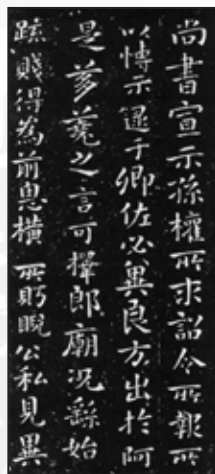 尚書宣示孫權所求詔令所報所
以博示逮于卿佐必異良方出於阿
是芻蕘之言可擇郎廟況繇始
疏賤得為前恩橫所眄睨公私見異